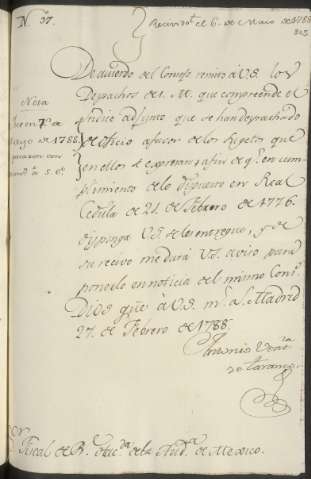 N. 37.
Recivose el 6. de Maio de 1788
De acuerdo del Consejo remito á V.S. los
Despachos de S. M. que comprehende el
Yndice adjunto que se han despachado
de oficio a favor de los sugetos que
en ellos se expresan; a fin de q.e en cum-
plimiento de lo dispuesto en Real
Cedula de 21. de Febrero de 1776.
disponga V.S. se les entreguen, y de
su recivo me dará V.S. aviso para
ponerlo en noticia del mismo Cons.
Dios gue á V.S. m.s a.s Madrid
27. de Febrero de 1788.
Antonio Vent.ra
de Taranco
Nota
en 7 de
Mayo de 1788.
S.or Fiscal de R.l de la Aud.a de Mexico.